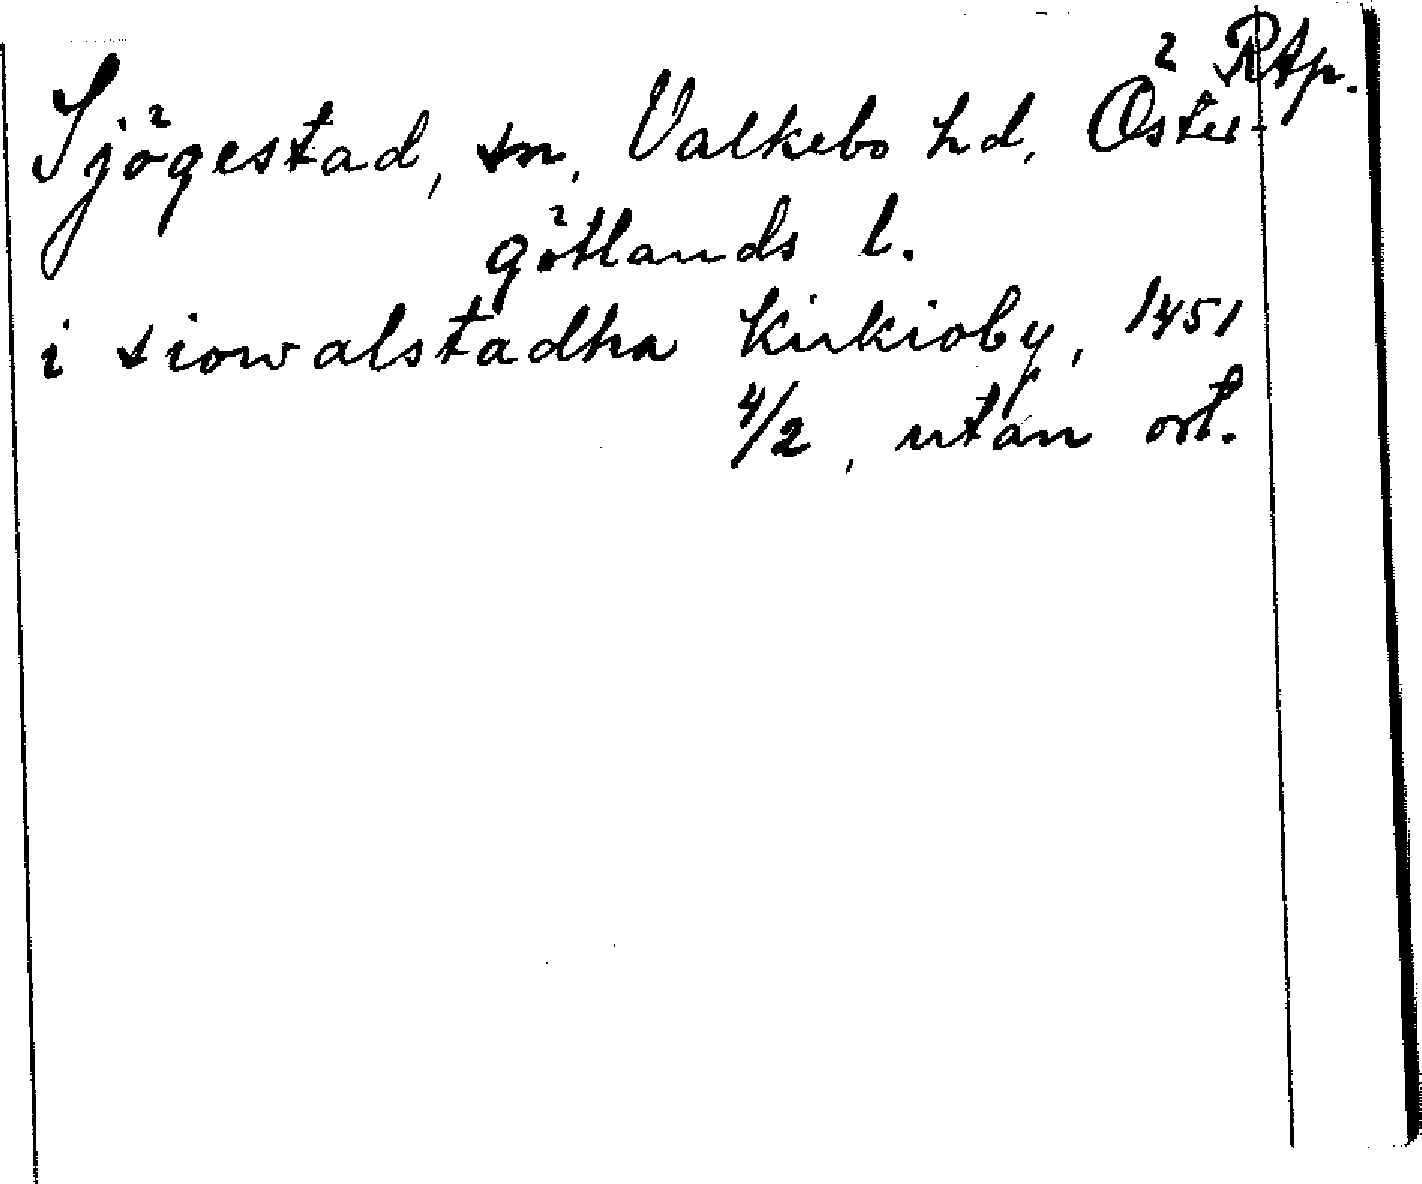 Rtp.
Sjögestad, sn, Valkebo hd, Öster-
götlands l.
i siowalstadha kirkioby, 1451
4/2, utan ort.